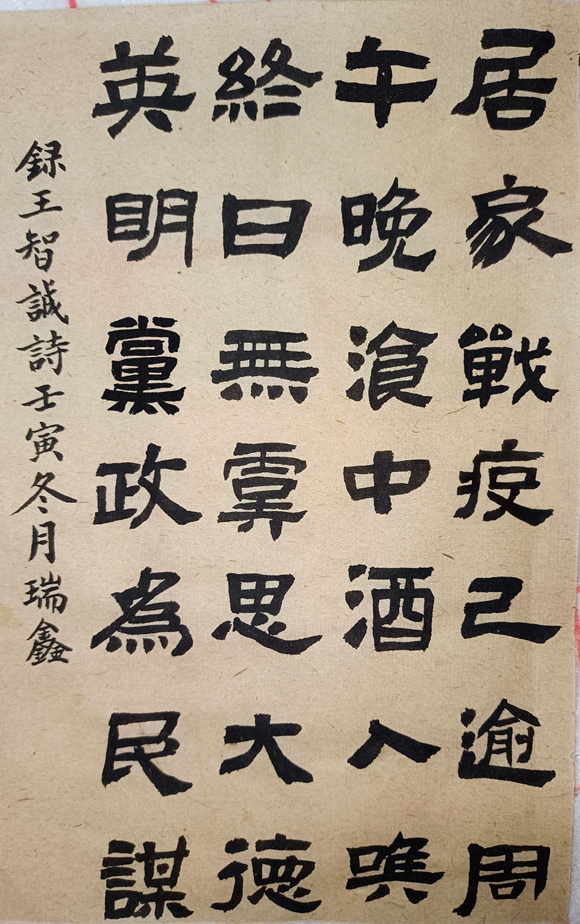 居家戰疫已逾周
午晚飡中酒入喉
終日無覃思大德
英明黨政為民謀
録王智誠詩壬寅冬月瑞鑫